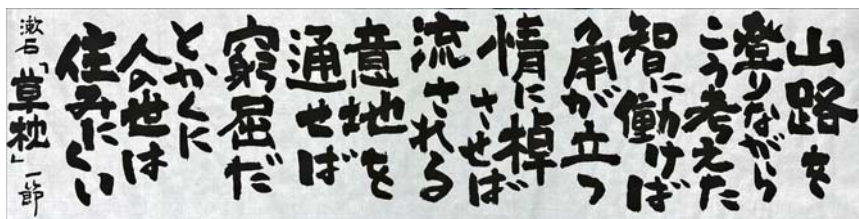 山路を
登りながら
こう考えた
智に働けば
角が立つ
情に棹
させば
流される
意地を
通せば
窮屈だ
とかくに
人の世は
住みにくい
漱石「草枕」一節